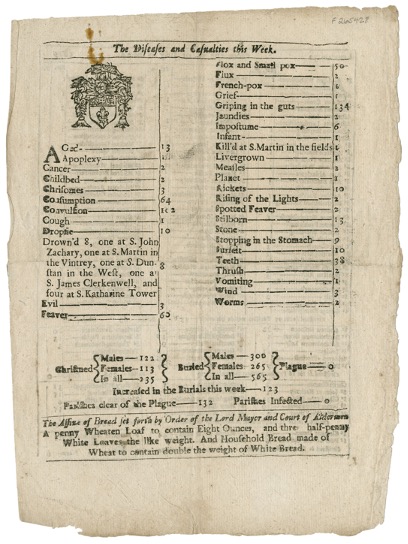 F 2005428
The Diseases and Casualties this Week.
AGed 13
Apoplexy 1
Cancer 2
Childbed 2
Chrisomes 3
Consumption 64
Convulsion 102
Cough 1
Dropsie 10
Drown'd 8, one at S. John
Zachary, one at S. Martin in
the Vintrey, one at S. Dun-
stan in the West, one at 8
S. James Clerkenwell, and
four at S. Katharine Tower
Evil 3
Feaver 60
Flox and Small pox 50
Flux 2
French-pox 1
Grief 1
Griping in the guts 134
Jaundies 2
Impostume 6
Infant 1
Kill'd at S. Martin in the fields 1
Livergrown 1
Meatles 2
Planet 1
Rickets 10
Rising of the Lights 2
Spotted Feaver 2
Stilborn 13
Stone 2
Stopping in the Stomach 9
Surfeit 10
Teeth 38
Thrush 2
Vomiting 1
Wind 3
Worms 2
Christned { Males 122 Females 113 In all 235 }
Buried { Males 300 Females 265 In all 565 }
Plague 0
Increased in the Burials this week 123
Parishes clear of the Plague 132 Parishes Infected 0
The Assise of Bread set forth by Order of the Lord Mayor and Court of Aldermen
A penny Wheaten Loaf to contain Eight Ounces, and three half-penny
White Loaves the like weight. And Household Bread made of
Wheat to contain double the weight of White Bread.